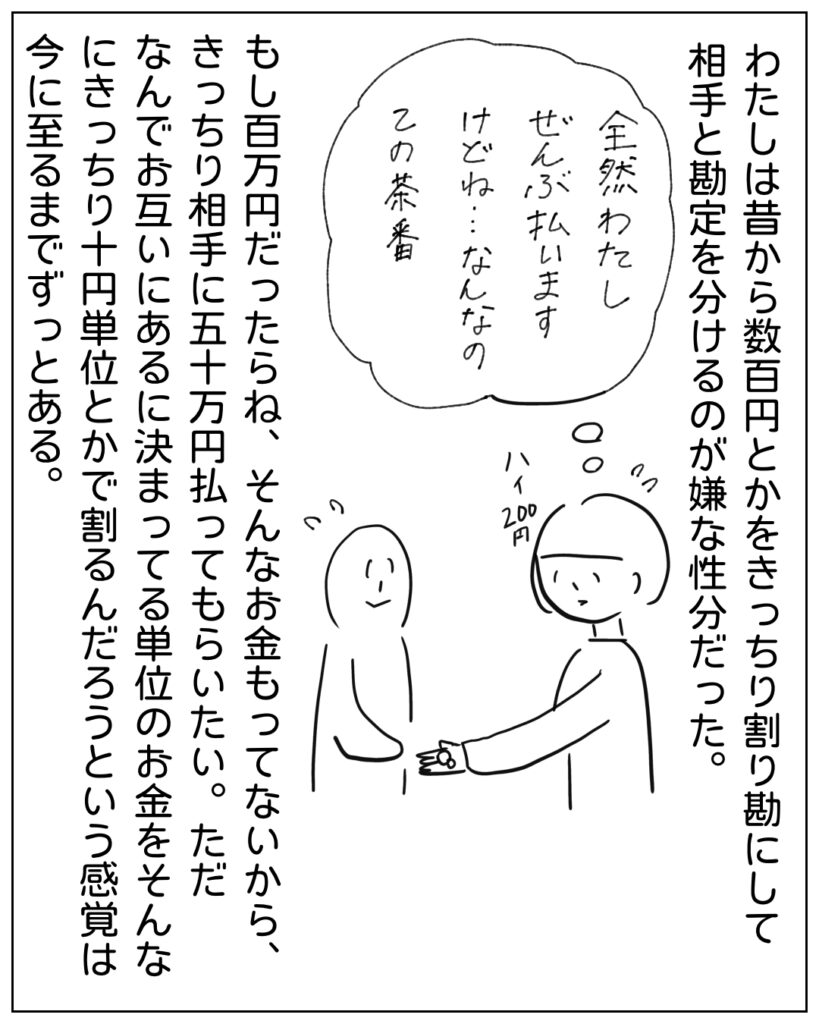 わたしは昔から数百円とかをきっちり割り勘にして
相手と勘定を分けるのが嫌な性分だった。
全然わたし
ぜんぶ払います
けどね…なんなの
この茶番
ハイ200円
もし百万円だったらね、そんなお金もってないから、
きっちり相手に五十万円払ってもらいたい。ただ
なんでお互いにあるに決まってる単位のお金をそんな
にきっちり十円単位とかで割るんだろうという感覚は
今に至るまでずっとある。